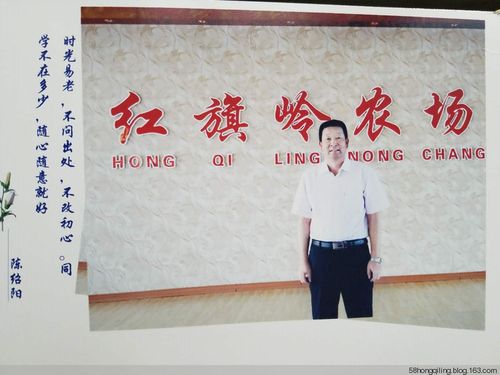 时光易老，不问出处，不改初心。同
学不在多少，随心随意就好
陈绍阳
红旗岭农场
HONG QI LING NONG CHANG
58hongqiling.blog.163.com